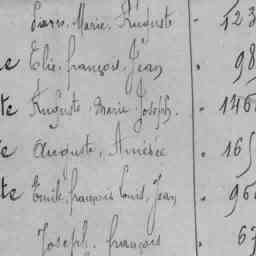 Pierre, Marie, Auguste . 123
e Elie, françois, Jean . 98
te Auguste, Marie, Joseph. . 146
e Auguste, Aimée . 165
te Emile, françois, Louis, Jean . 96
Joseph, françois . 67